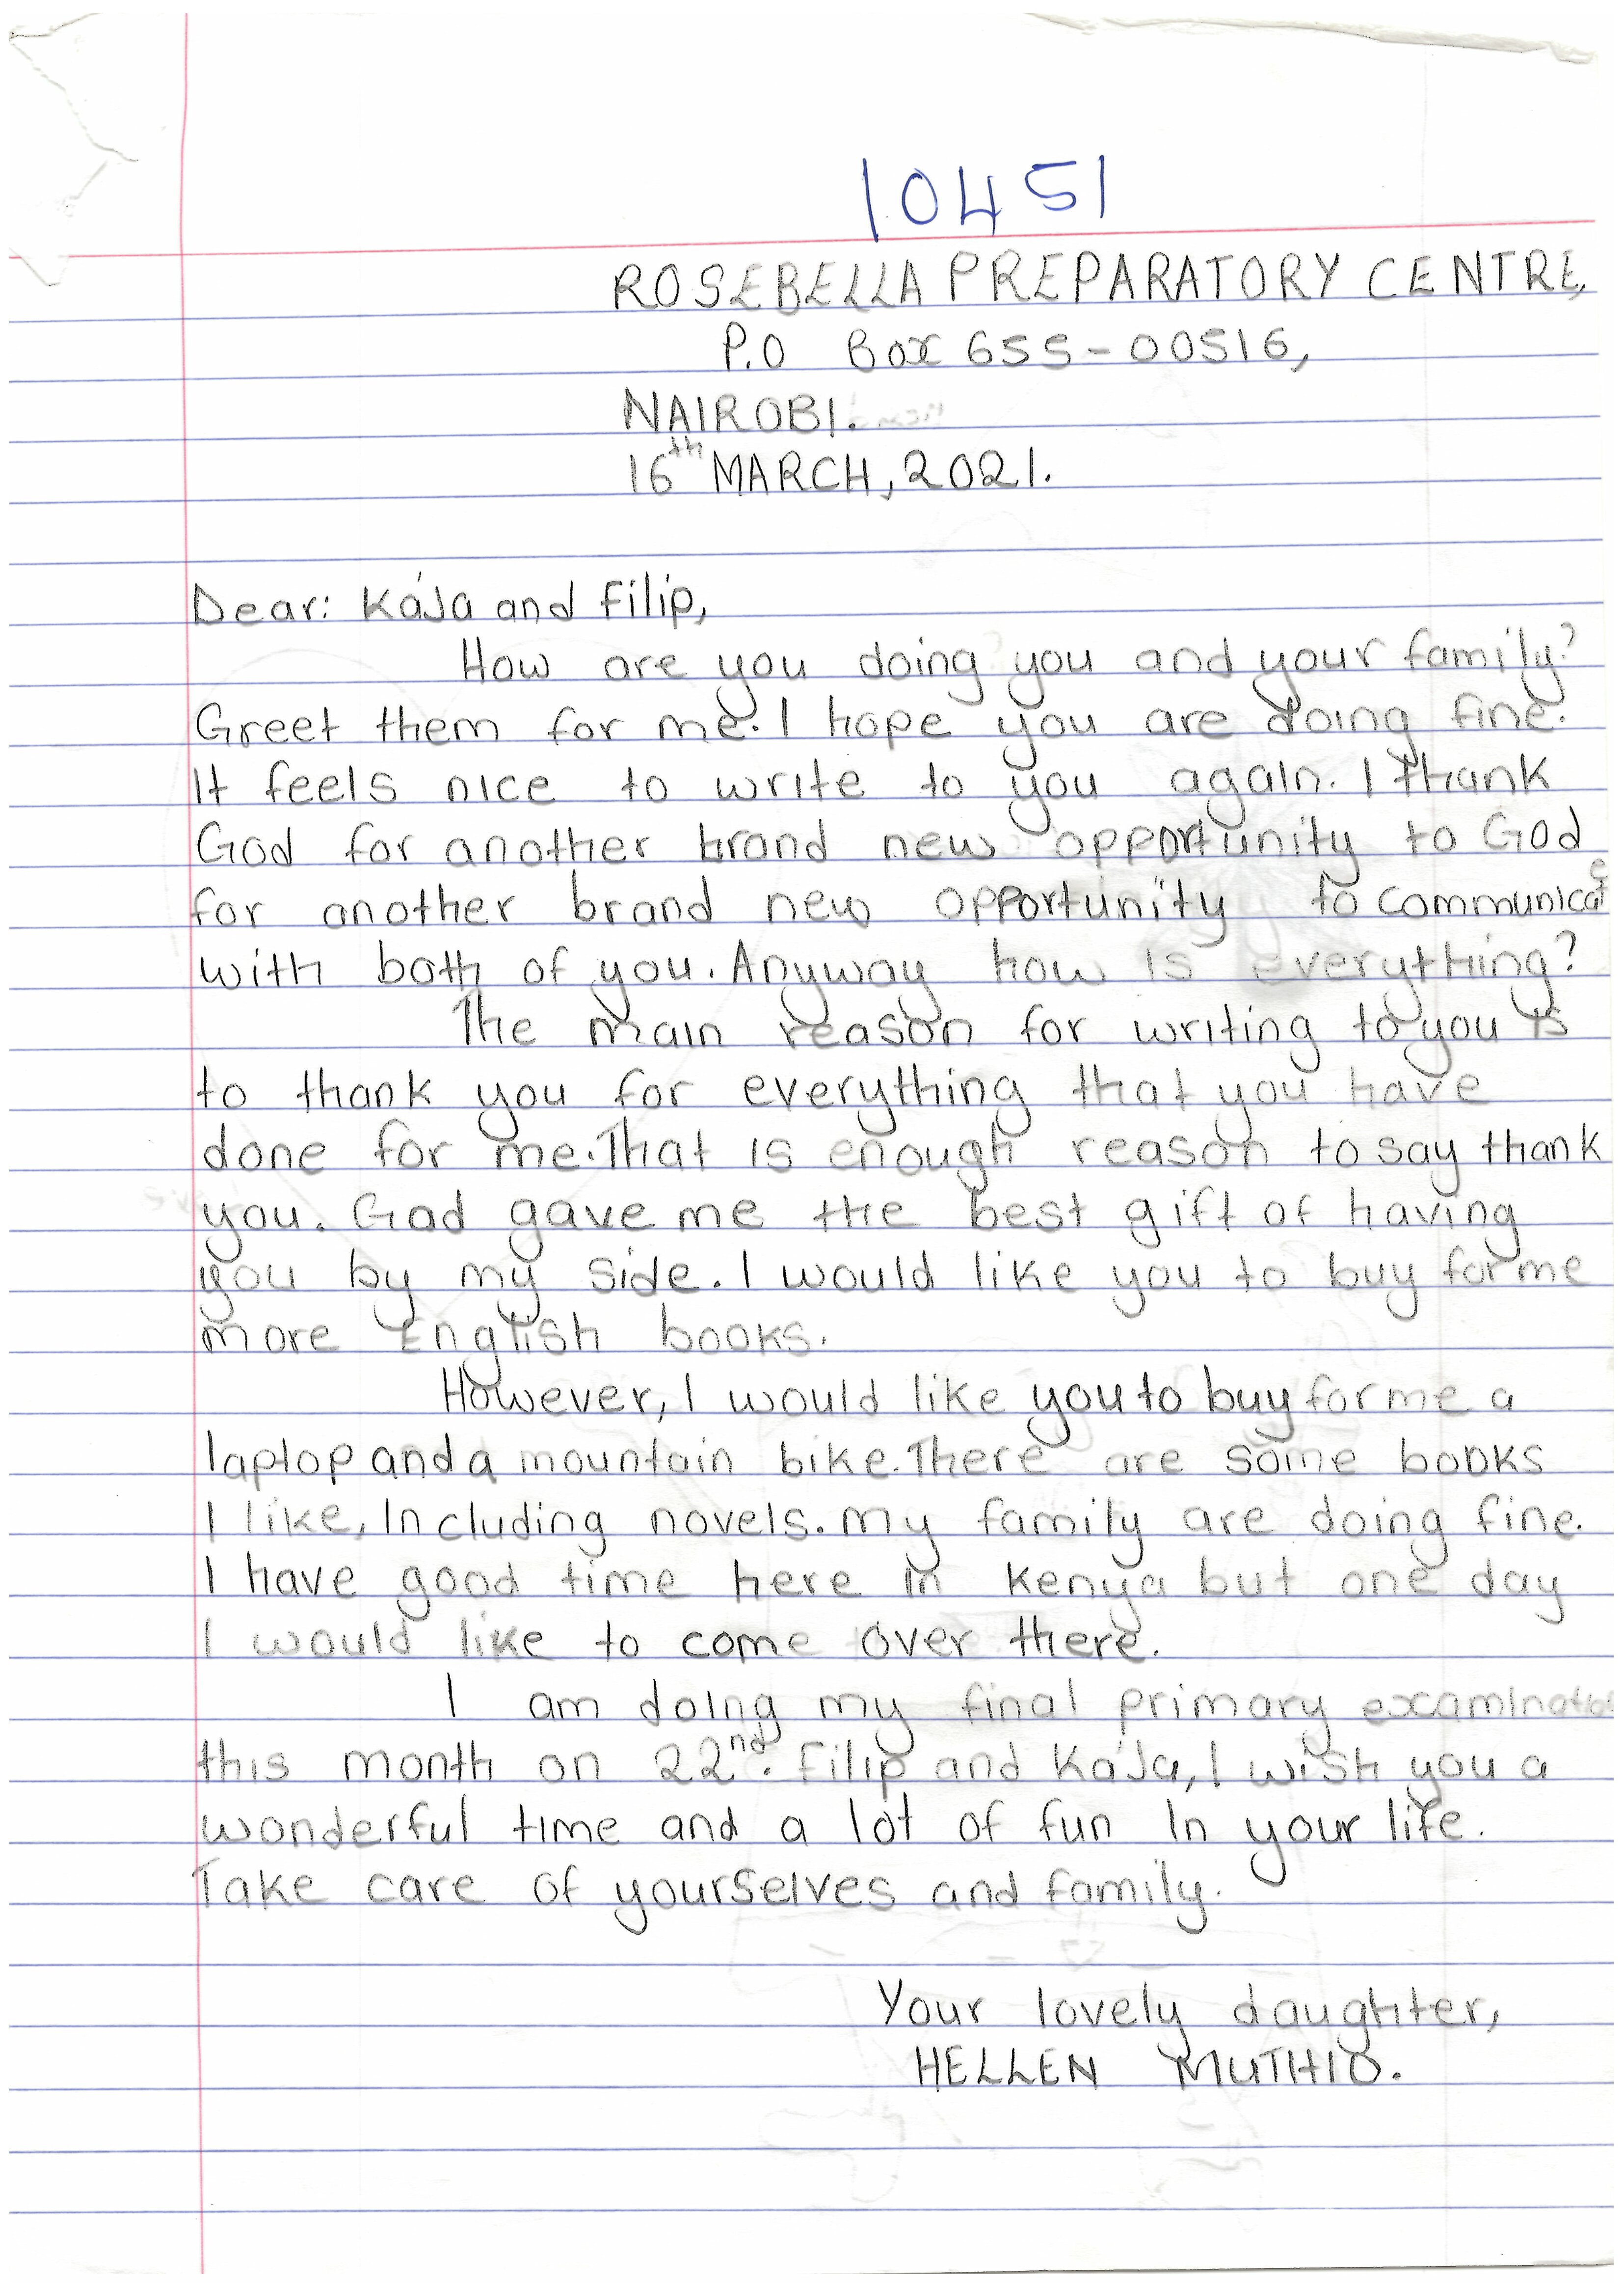 10451
ROSEBELLA PREPARATORY CENTRE,
P.O Box 655-00516,
NAIROBI.
16th MARCH, 2021.
Dear: Kája and Filip,
How are you doing you and your family?
Greet them for me. I hope you are doing fine.
It feels nice to write to you again. I thank
God for another brand new opportunity to God
for another brand new opportunity to communicate
with both of you. Anyway how is everything?
The main reason for writing to you is
to thank you for everything that you have
done for me. That is enough reason to say thank
you. God gave me the best gift of having
you by my side. I would like you to buy for me
more English books.
However, I would like you to buy for me a
laptop and a mountain bike. There are some books
I like, Including novels. My family are doing fine.
I have good time here in Kenya but one day
I would like to come over there.
I am doing my final primary examination
this month on 22nd. Filip and Kája, I wish you a
wonderful time and a lot of fun In your life.
Take care of yourselves and family.
Your lovely daughter,
HELLEN MUTHIO.